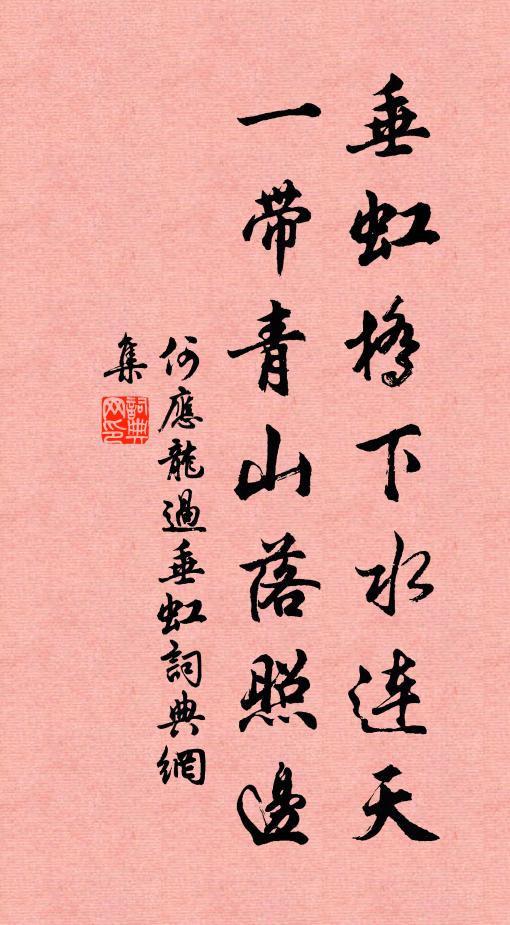 垂虹橋下水連天
一帶青山落照邊
何應龍過垂虹詞典網
集
詞典
网印